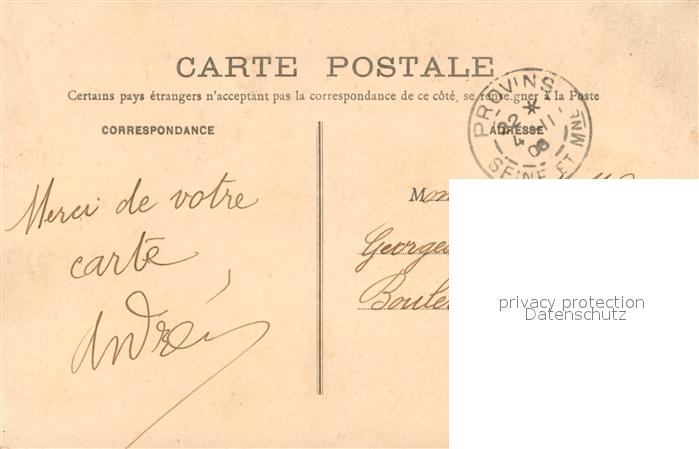 CARTE POSTALE
Certains pays étrangers n'acceptant pas la correspondance de ce côté, se renseigner à la Poste
CORRESPONDANCE
ADRESSE
PROVINS
SEINE ET MNE
Merci de votre
carte
André
M
Georges
privacy protection
Datenschutz